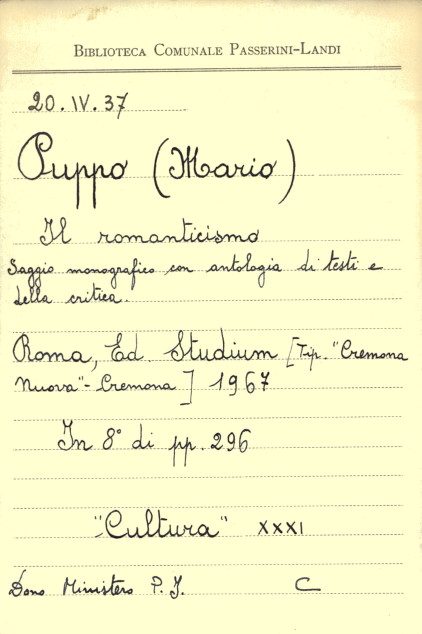 BIBLIOTECA COMUNALE PASSERINI-LANDI
20.IV.37
Puppo (Mario)
Il romanticismo
Saggio monografico con antologia di testi e
della critica.
Roma, Ed. Studium [Tip. "Cremona
Nuova"- Cremona] 1967
In 8° di pp. 296
"Cultura" XXXI
Dono Ministero P. I. C